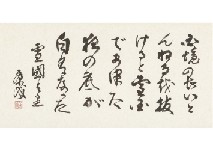 国境の長いと
んねるを抜
けると雪国
であった
夜の底が
白くなった
雪國
康成